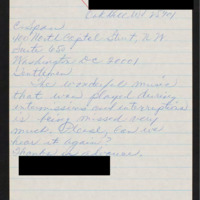 C-Span
400 North Capitol Street, N.W.
Suite 650
Washington D.C. 20001
Gentlemen
The wonderful music
that was played during
intermissions and interruptions
is being missed very
much. Please, can we
hear it again?
Thanks in advance,